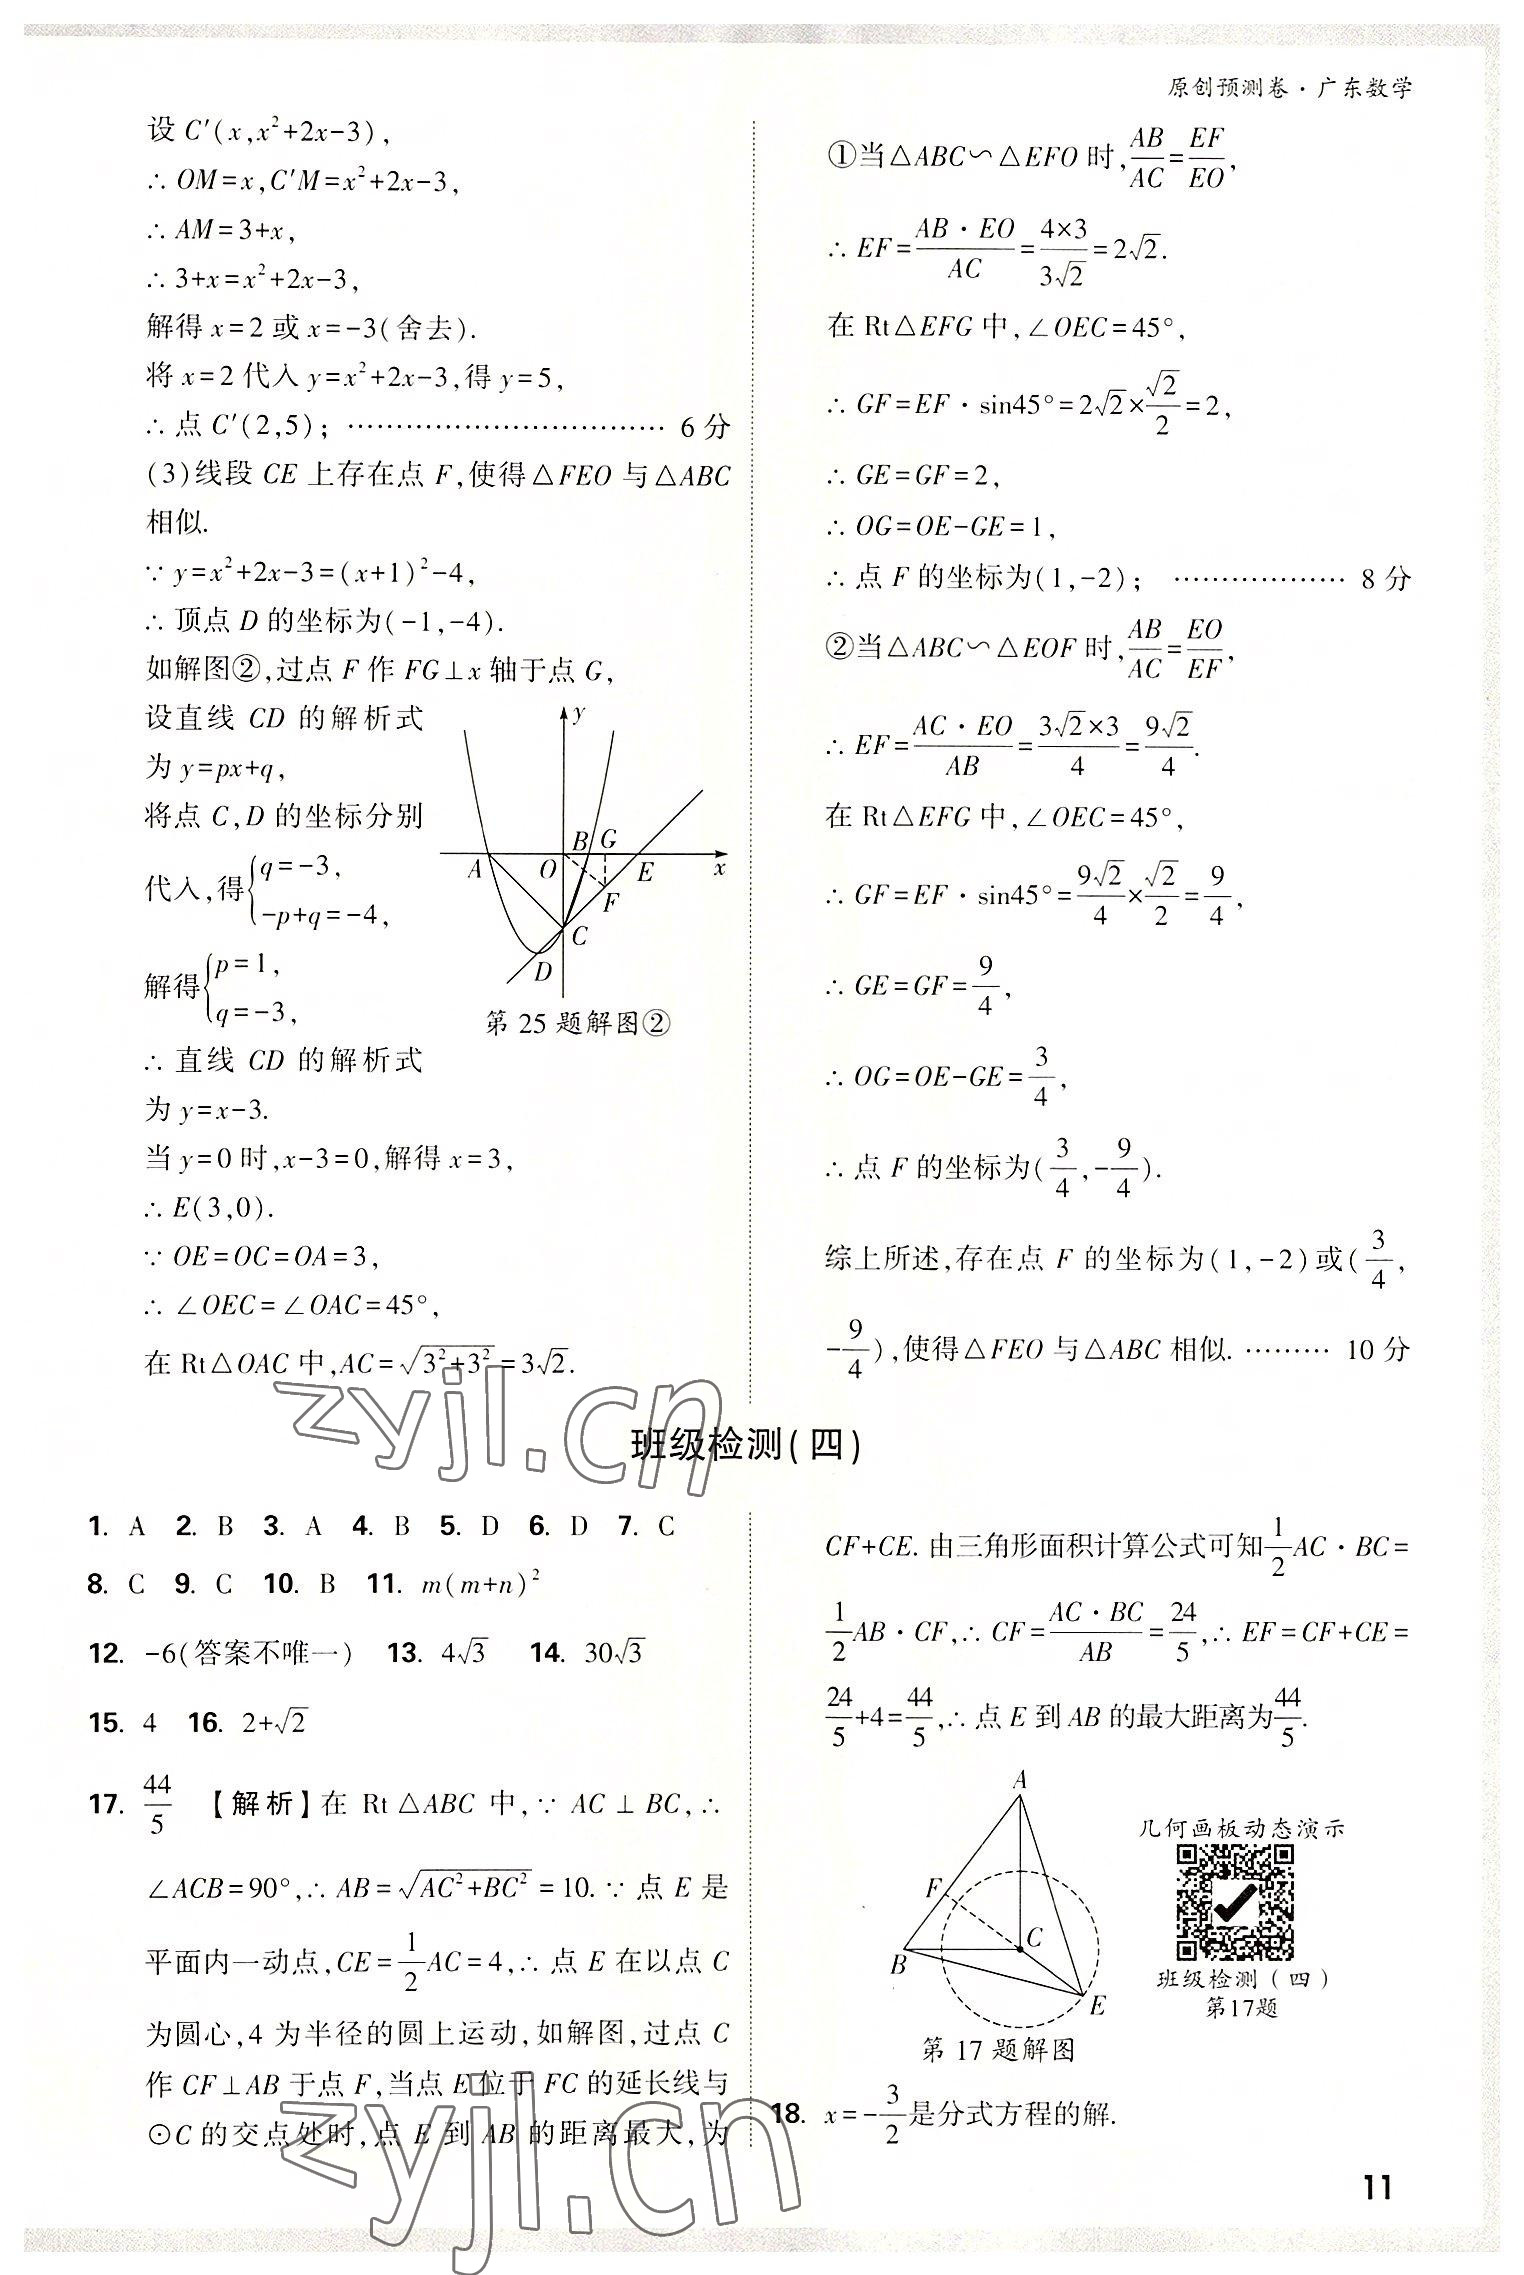 原创预测卷·广东数学
设 C′(x,x²+2x-3),
∴ OM=x,C′M=x²+2x-3,
∴ AM=3+x,
∴ 3+x=x²+2x-3,
解得 x=2 或 x=-3(舍去).
将 x=2 代入 y=x²+2x-3,得 y=5,
∴ 点 C′(2,5); ……………………………… 6 分
(3)线段 CE 上存在点 F,使得△FEO 与△ABC
相似.
∵ y=x²+2x-3=(x+1)²-4,
∴ 顶点 D 的坐标为(-1,-4).
如解图②,过点 F 作 FG⊥x 轴于点 G,
设直线 CD 的解析式
为 y=px+q,
将点 C,D 的坐标分别
代入,得{q=-3,
-p+q=-4,
解得{p=1,
q=-3,
∴ 直线 CD 的解析式
为 y=x-3.
y
A O B G E x
F
C
D
第 25 题解图②
当 y=0 时,x-3=0,解得 x=3,
∴ E(3,0).
∵ OE=OC=OA=3,
∴ ∠OEC=∠OAC=45°,
在 Rt△OAC 中,AC=√(3²+3²)=3√2.
①当△ABC∽△EFO 时,AB/AC=EF/EO,
∴ EF=(AB·EO)/AC=(4×3)/(3√2)=2√2.
在 Rt△EFG 中,∠OEC=45°,
∴ GF=EF·sin45°=2√2×√2/2=2,
∴ GE=GF=2,
∴ OG=OE-GE=1,
∴ 点 F 的坐标为(1,-2); ……………… 8 分
②当△ABC∽△EOF 时,AB/AC=EO/EF,
∴ EF=(AC·EO)/AB=(3√2×3)/4=9√2/4.
在 Rt△EFG 中,∠OEC=45°,
∴ GF=EF·sin45°=9√2/4×√2/2=9/4,
∴ GE=GF=9/4,
∴ OG=OE-GE=3/4,
∴ 点 F 的坐标为(3/4,-9/4).
综上所述,存在点 F 的坐标为(1,-2)或(3/4,
-9/4),使得△FEO 与△ABC 相似. ……… 10 分
班级检测(四)
1. A 2. B 3. A 4. B 5. D 6. D 7. C
8. C 9. C 10. B 11. m(m+n)²
12. -6(答案不唯一) 13. 4√3 14. 30√3
15. 4 16. 2+√2
17. 44/5 【解析】在 Rt△ABC 中,∵ AC⊥BC,∴
∠ACB=90°,∴ AB=√(AC²+BC²)=10.∵ 点 E 是
平面内一动点,CE=1/2AC=4,∴ 点 E 在以点 C
为圆心,4 为半径的圆上运动,如解图,过点 C
作 CF⊥AB 于点 F,当点 E 位于 FC 的延长线与
⊙C 的交点处时,点 E 到 AB 的距离最大,为
CF+CE. 由三角形面积计算公式可知1/2AC·BC=
1/2AB·CF,∴ CF=(AC·BC)/AB=24/5,∴ EF=CF+CE=
24/5+4=44/5,∴ 点 E 到 AB 的最大距离为44/5.
A
F
C
B
E
第 17 题解图
几何画板动态演示
班级检测(四)
第17题
18. x=-3/2是分式方程的解.
11
zyjl.cn
zyjl.cn